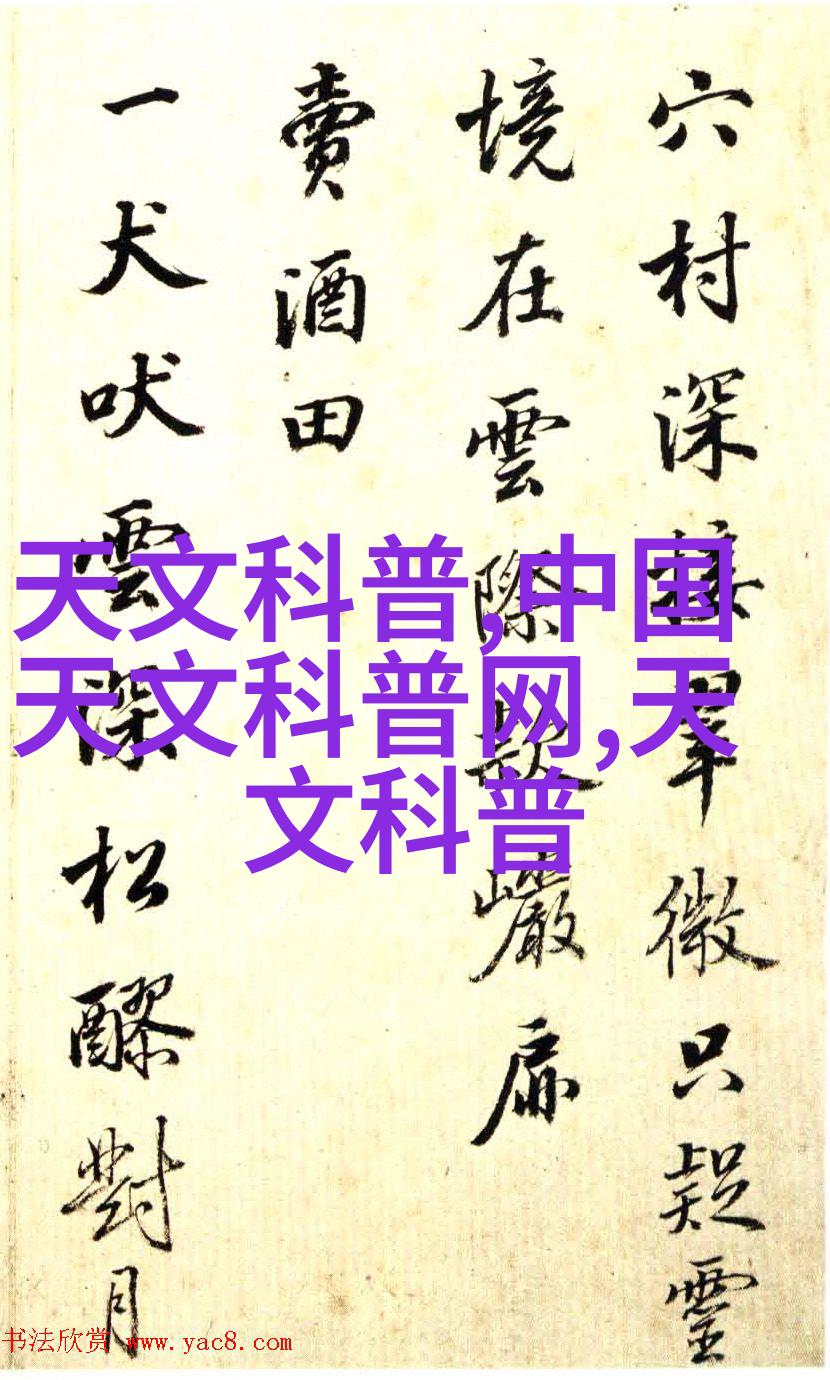 穴村深接翠微只疑靈
境在雲際款巖扉
賣酒田
一犬吠雲深松醪對月
天文科普,中国
天文科普网,天
文科普
书法欣赏 www.yac8.com